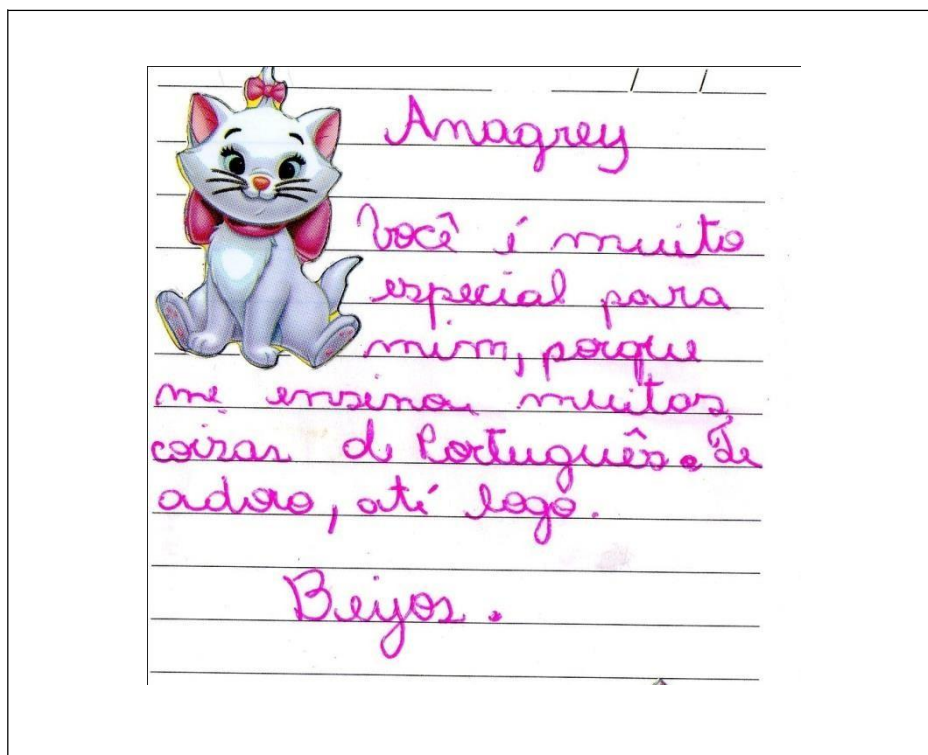 Anagrey
Você é muito
especial para
mim, porque
me ensinou muitas
coisas de Português. Te
adoro, até logo.
Beijos.